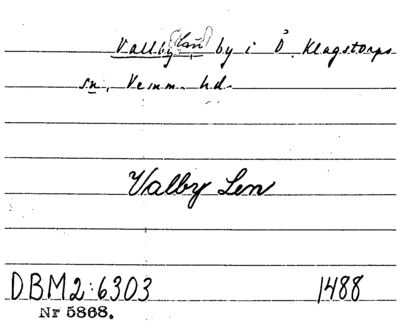 Vallby (Lm) by i Ö. Klagstorps
sn, Vemm. hd.
Valby Len
DBM2:6303 1488
Nr 5868.